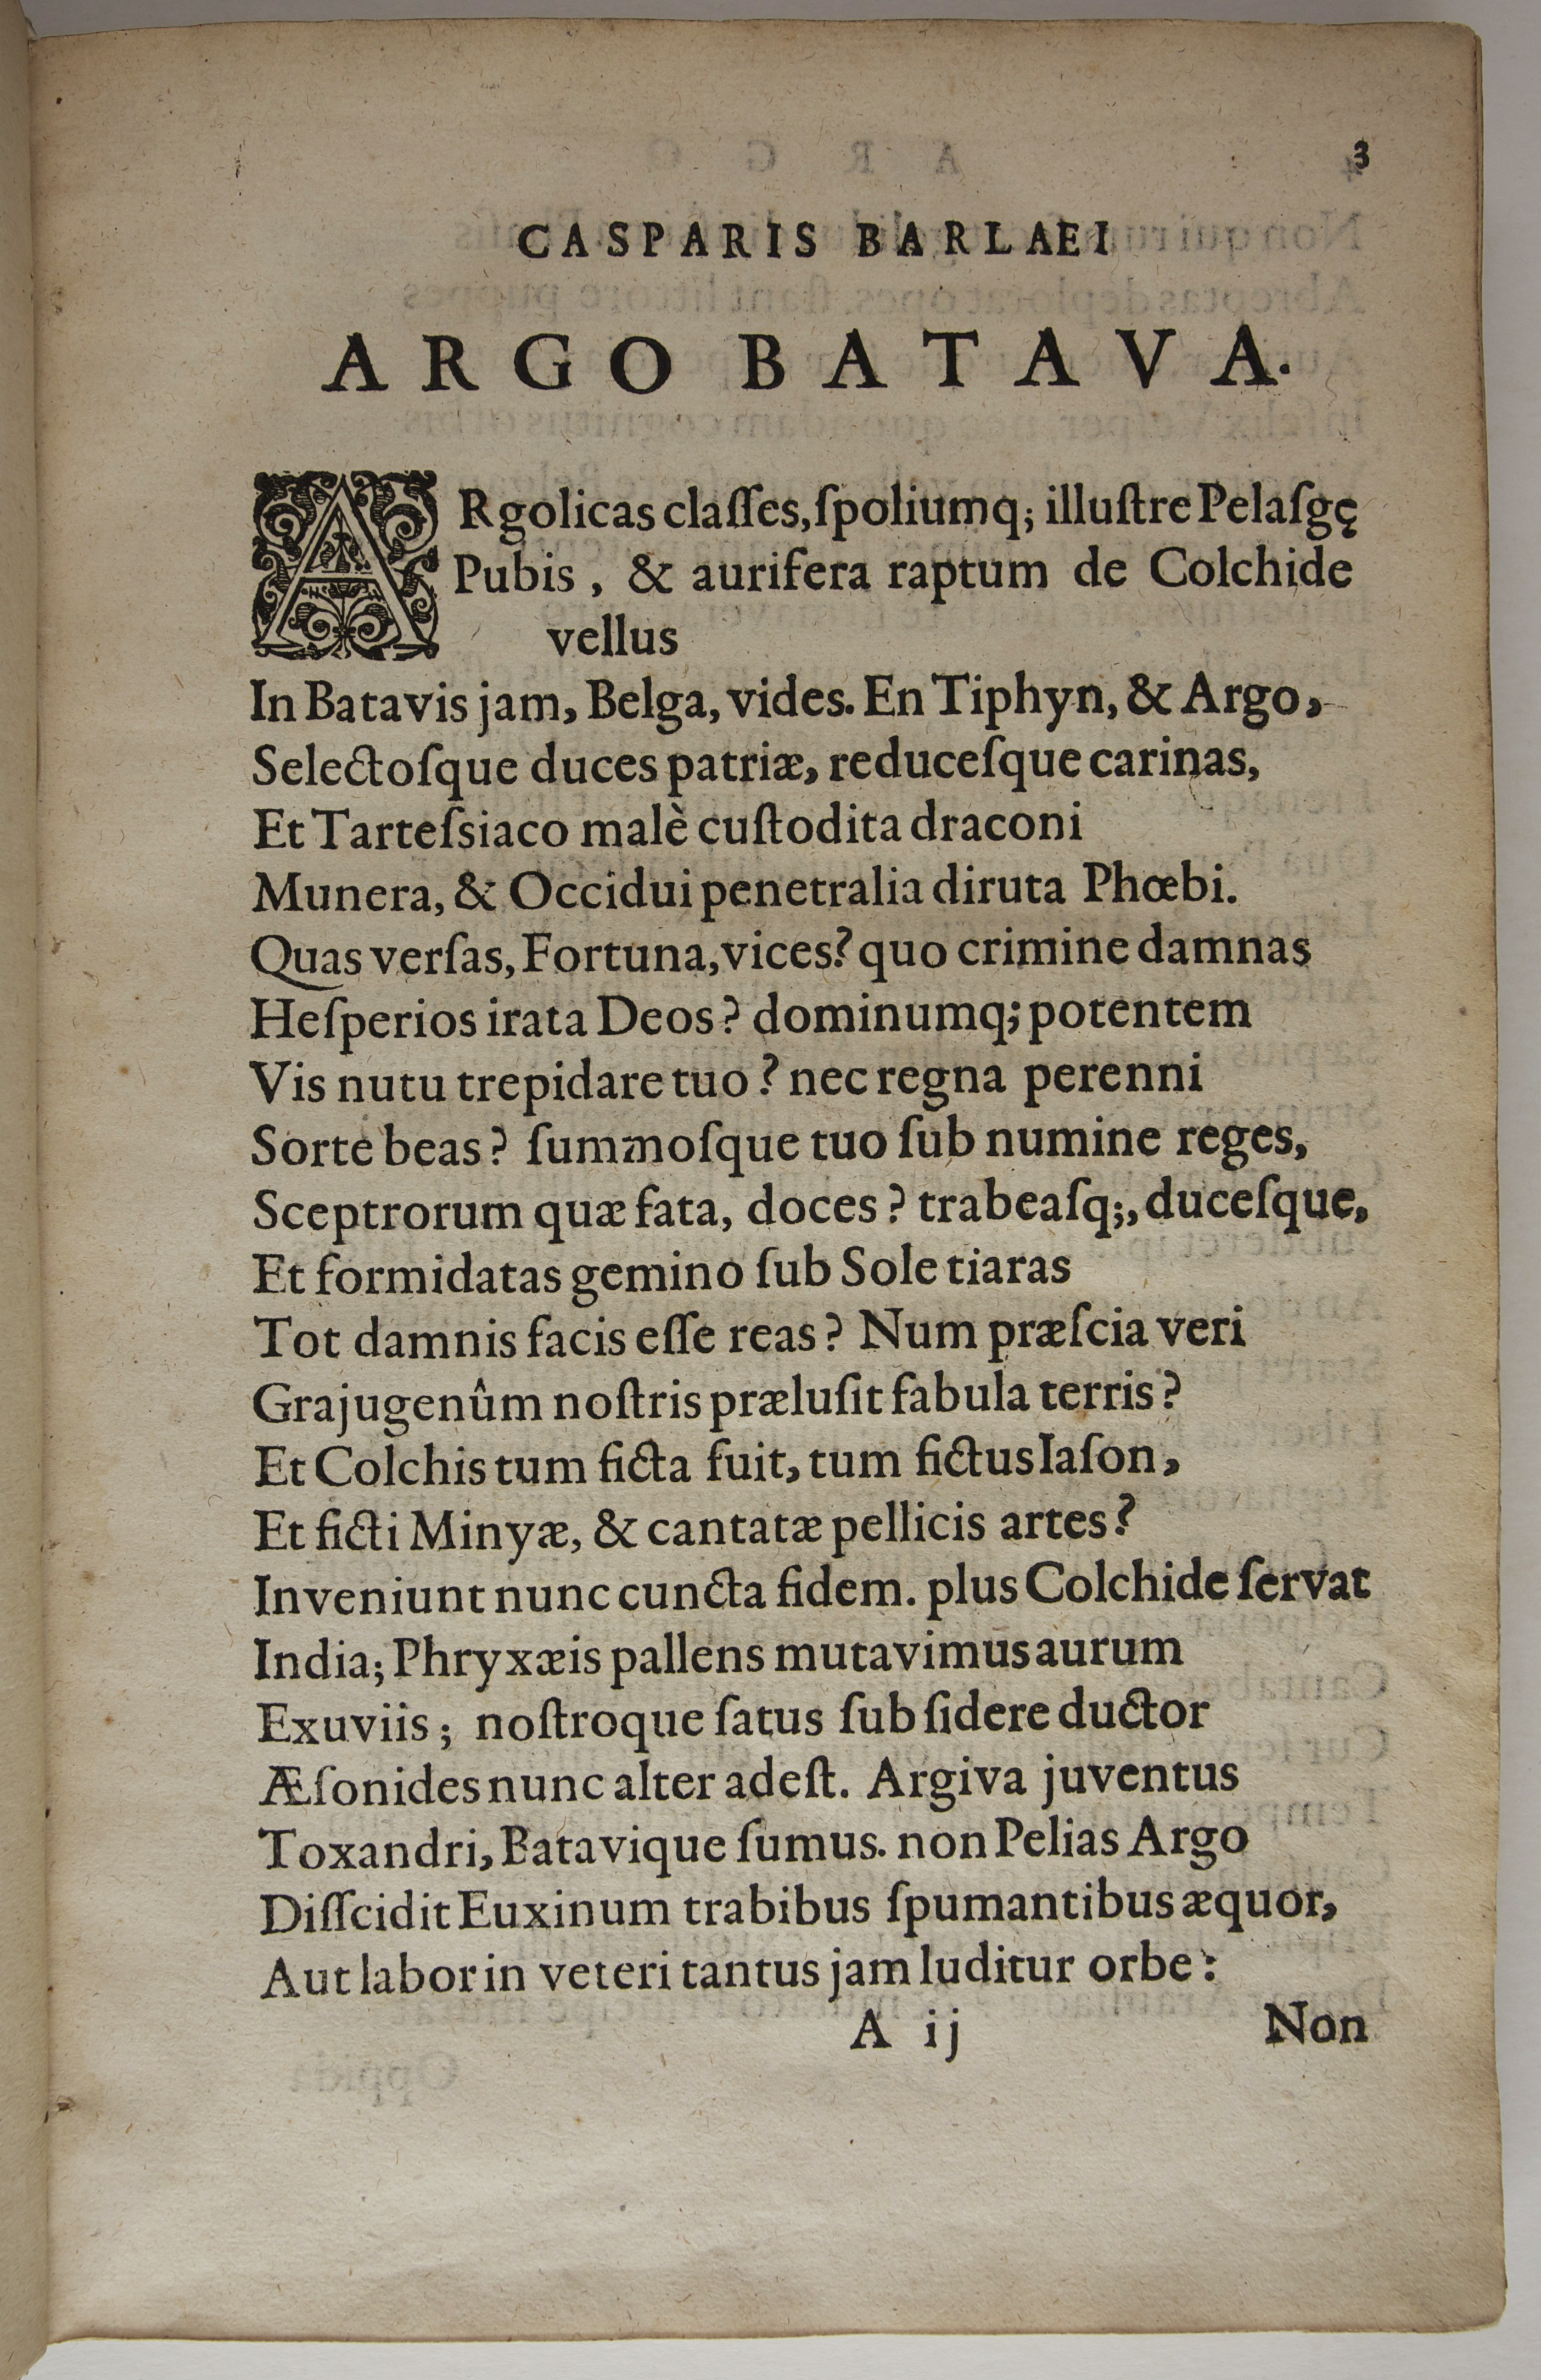 3
CASPARIS BARLAEI
ARGO BATAVA.
ARgolicas claſſes, ſpoliumq; illuſtre Pelaſgę
Pubis, & aurifera raptum de Colchide
vellus
In Batavis jam, Belga, vides. En Tiphyn, & Argo,
Selectoſque duces patriæ, reduceſque carinas,
Et Tarteſsiaco malè cuſtodita draconi
Munera, & Occidui penetralia diruta Phœbi.
Quas verſas, Fortuna, vices? quo crimine damnas
Heſperios irata Deos? dominumq; potentem
Vis nutu trepidare tuo? nec regna perenni
Sorte beas? ſummoſque tuo ſub numine reges,
Sceptrorum quæ fata, doces? trabeaſq;, duceſque,
Et formidatas gemino ſub Sole tiaras
Tot damnis facis eſſe reas? Num præſcia veri
Grajugenûm noſtris præluſit fabula terris?
Et Colchis tum ficta fuit, tum fictus Iaſon,
Et ficti Minyæ, & cantatæ pellicis artes?
Inveniunt nunc cuncta fidem. plus Colchide ſervat
India; Phryxæis pallens mutavimus aurum
Exuviis; noſtroque ſatus ſub ſidere ductor
Æſonides nunc alter adeſt. Argiva juventus
Toxandri, Batavique ſumus. non Pelias Argo
Diſſcidit Euxinum trabibus ſpumantibus æquor,
Aut labor in veteri tantus jam luditur orbe:
A ij Non